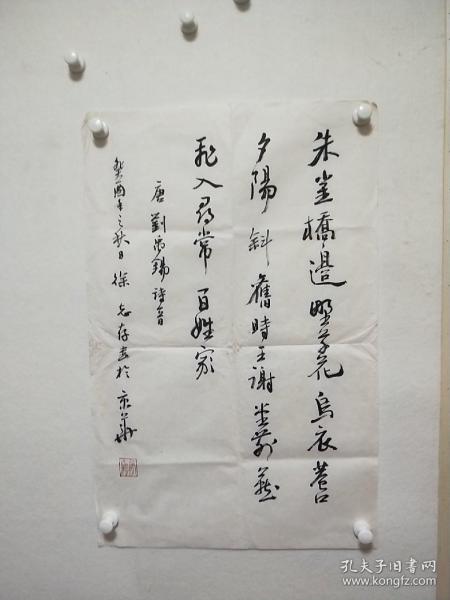 朱雀橋邊野草花烏衣巷口
夕陽斜舊時王謝堂前燕
飛入尋常百姓家
唐劉禹錫詩
癸酉年之秋日徐志存书於京華
孔夫子旧书网
www.kongfz.com